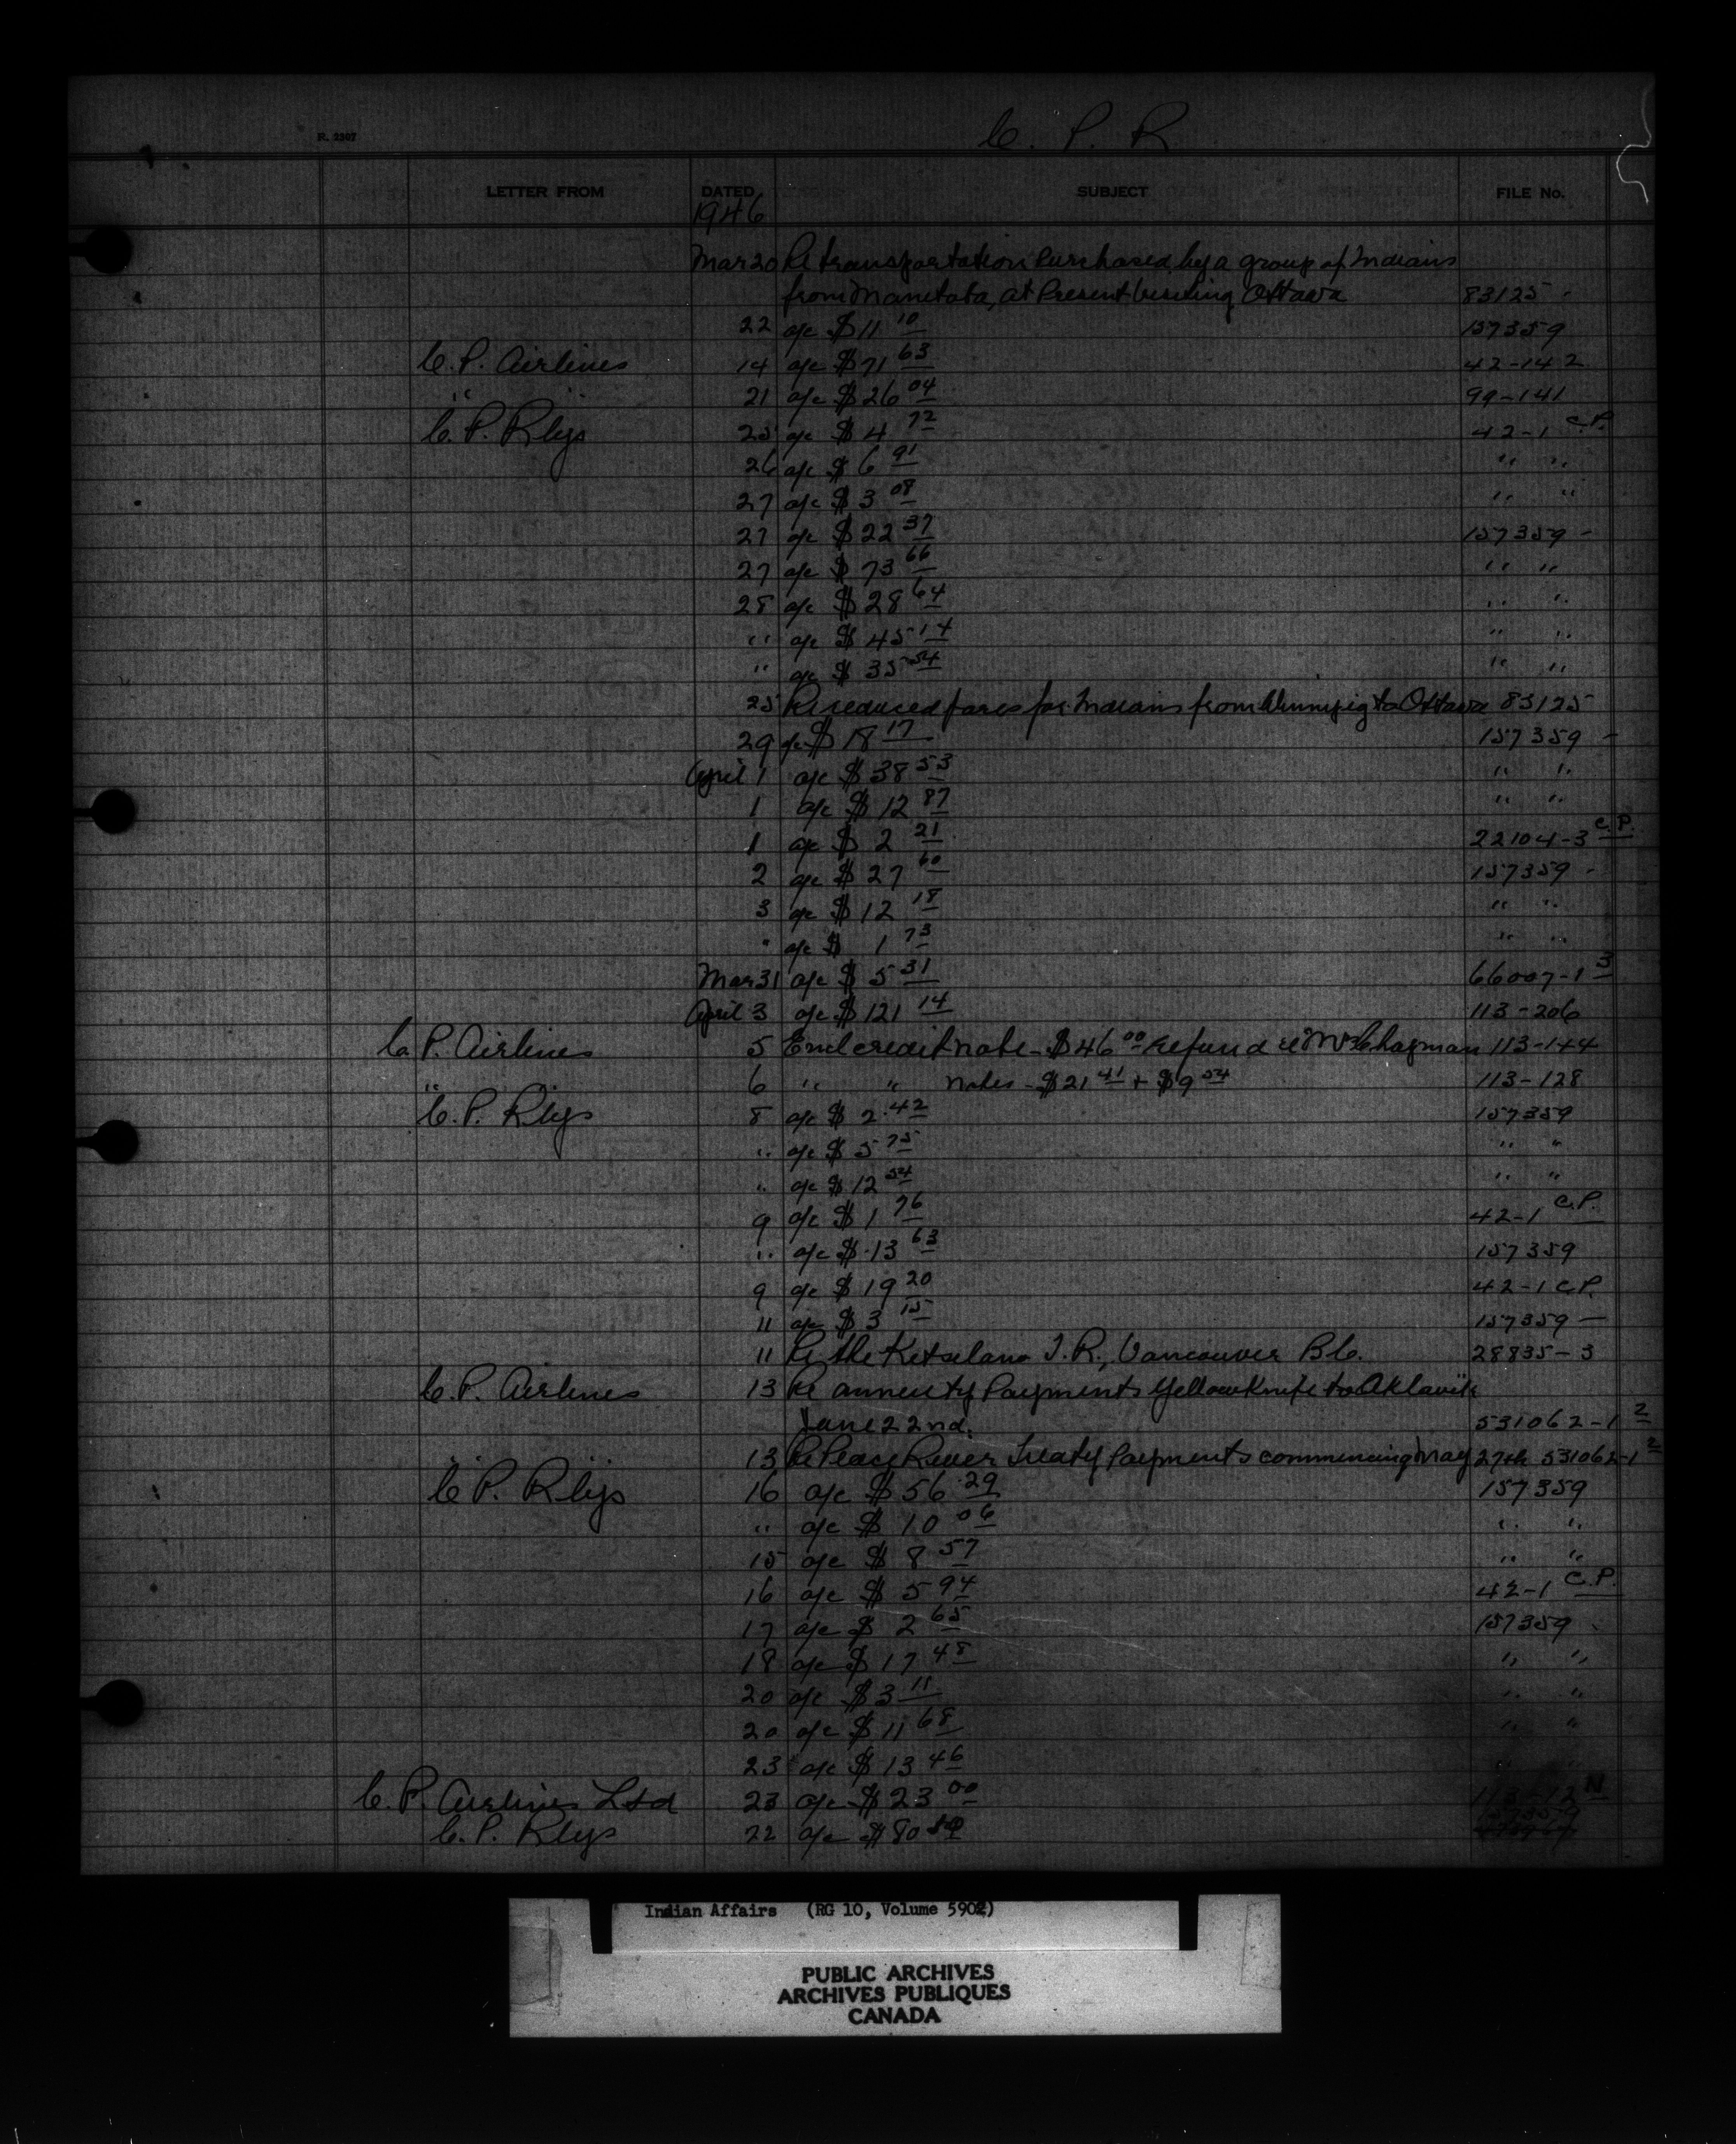 C. P. R
R. 2307
LETTER FROM DATED SUBJECT FILE No.
1946
Mar 20 Re transportation purchased by a group of Indians
from Manitoba, at Present visiting Ottawa 83125 -
22 a/c $11 10 157359
C.P. Airlines 14 a/c $71 63 42-142
" 21 a/c $26 04 99-141
C.P. Rlys 25 a/c $4 72 42-1 C.P.
26 a/c $6 91 " "
27 a/c $3 08 " "
27 a/c $22 37 157359 -
27 a/c $73 66 " "
28 a/c $28 64 " "
" a/c $45 14 " "
" a/c $35 54 " "
25 Re reduced fares for Indians from Winnipeg to Ottawa 83125
29 a/c $18 17 157359 -
April 1 a/c $38 53 " "
1 a/c $12 87 " "
1 a/c $2 21 22104-3 C.P.
2 a/c $27 60 157359 -
3 a/c $12 18 " "
" a/c $1 73 " "
Mar 31 a/c $5 31 66007-1 3
April 3 a/c $121 14 113-206
C.P. Airlines 5 Encl credit note - $46 00 refund re Mr Chapman 113-144
" 6 " " notes - $21 41 + $9 54 113-128
C.P. Rlys 8 a/c $2.42 157359
" a/c $5 75 " "
" a/c $12 54 " "
9 a/c $1 76 42-1 C.P.
" a/c $13 63 157359
9 a/c $19 20 42-1 C.P.
11 a/c $3 15 157359 —
11 Re the Kitselano I.R., Vancouver B.C. 28835-3
C.P. Airlines 13 Re annuity Payments Yellowknife to Aklavik
June 22nd. 531062-1 2
" 13 Re Peace River Treaty Payments commencing May 27th 531062-1 2
C.P. Rlys 16 a/c $56.29 157359
" a/c $10 06 " "
15 a/c $8 57 " "
16 a/c $5 94 42-1 C.P.
17 a/c $2 65 157359
18 a/c $17 48 " "
20 a/c $3 11 " "
20 a/c $11 68 " "
23 a/c $13 46
C.P. Airlines Ltd 23 a/c $23 00 113-12 N
C.P. Rlys 22 a/c $80 157359
Indian Affairs (RG 10, Volume 5902)
PUBLIC ARCHIVES
ARCHIVES PUBLIQUES
CANADA